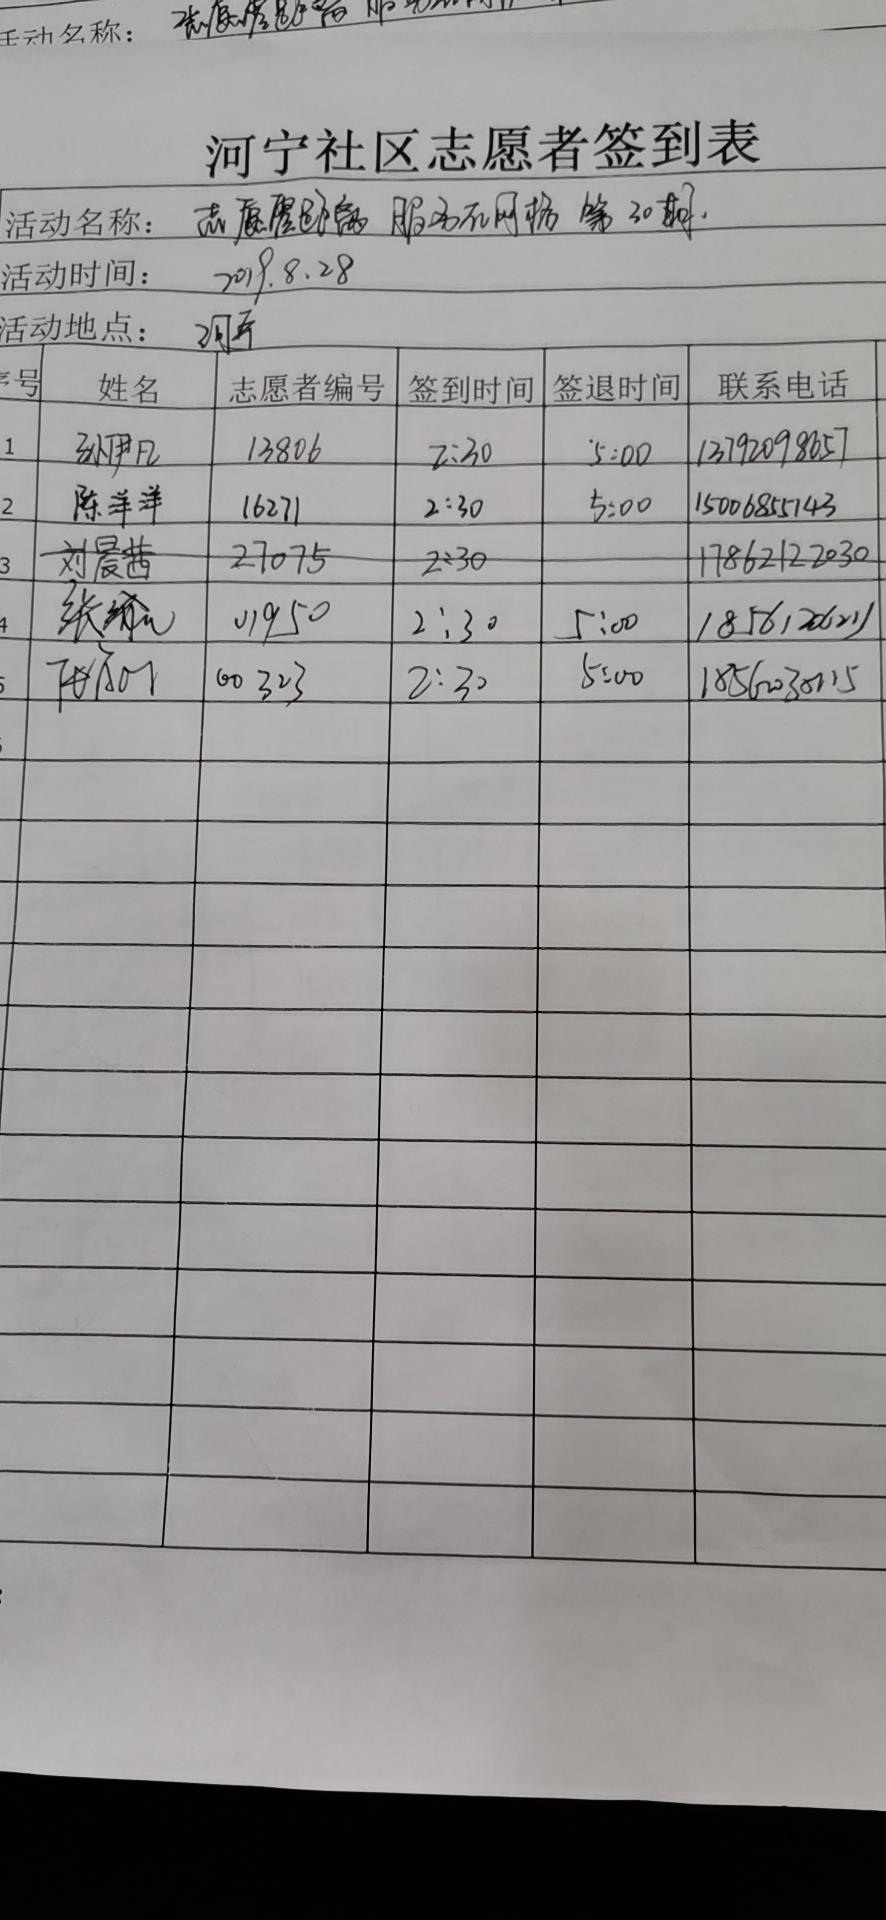 活动名称：
河宁社区志愿者签到表
活动名称： 志愿 服务 网格 第30期.
活动时间： 2019.8.28
活动地点： 河宁
序号 姓名 志愿者编号 签到时间 签退时间 联系电话
1 孙伊凡 13806 2:30 5:00 13792098657
2 陈洋洋 16271 2:30 5:00 15006855143
3 刘晨茜 27075 2:30 17862122030
4 张 01950 2:30 5:00
5 00323 2:30 5:00